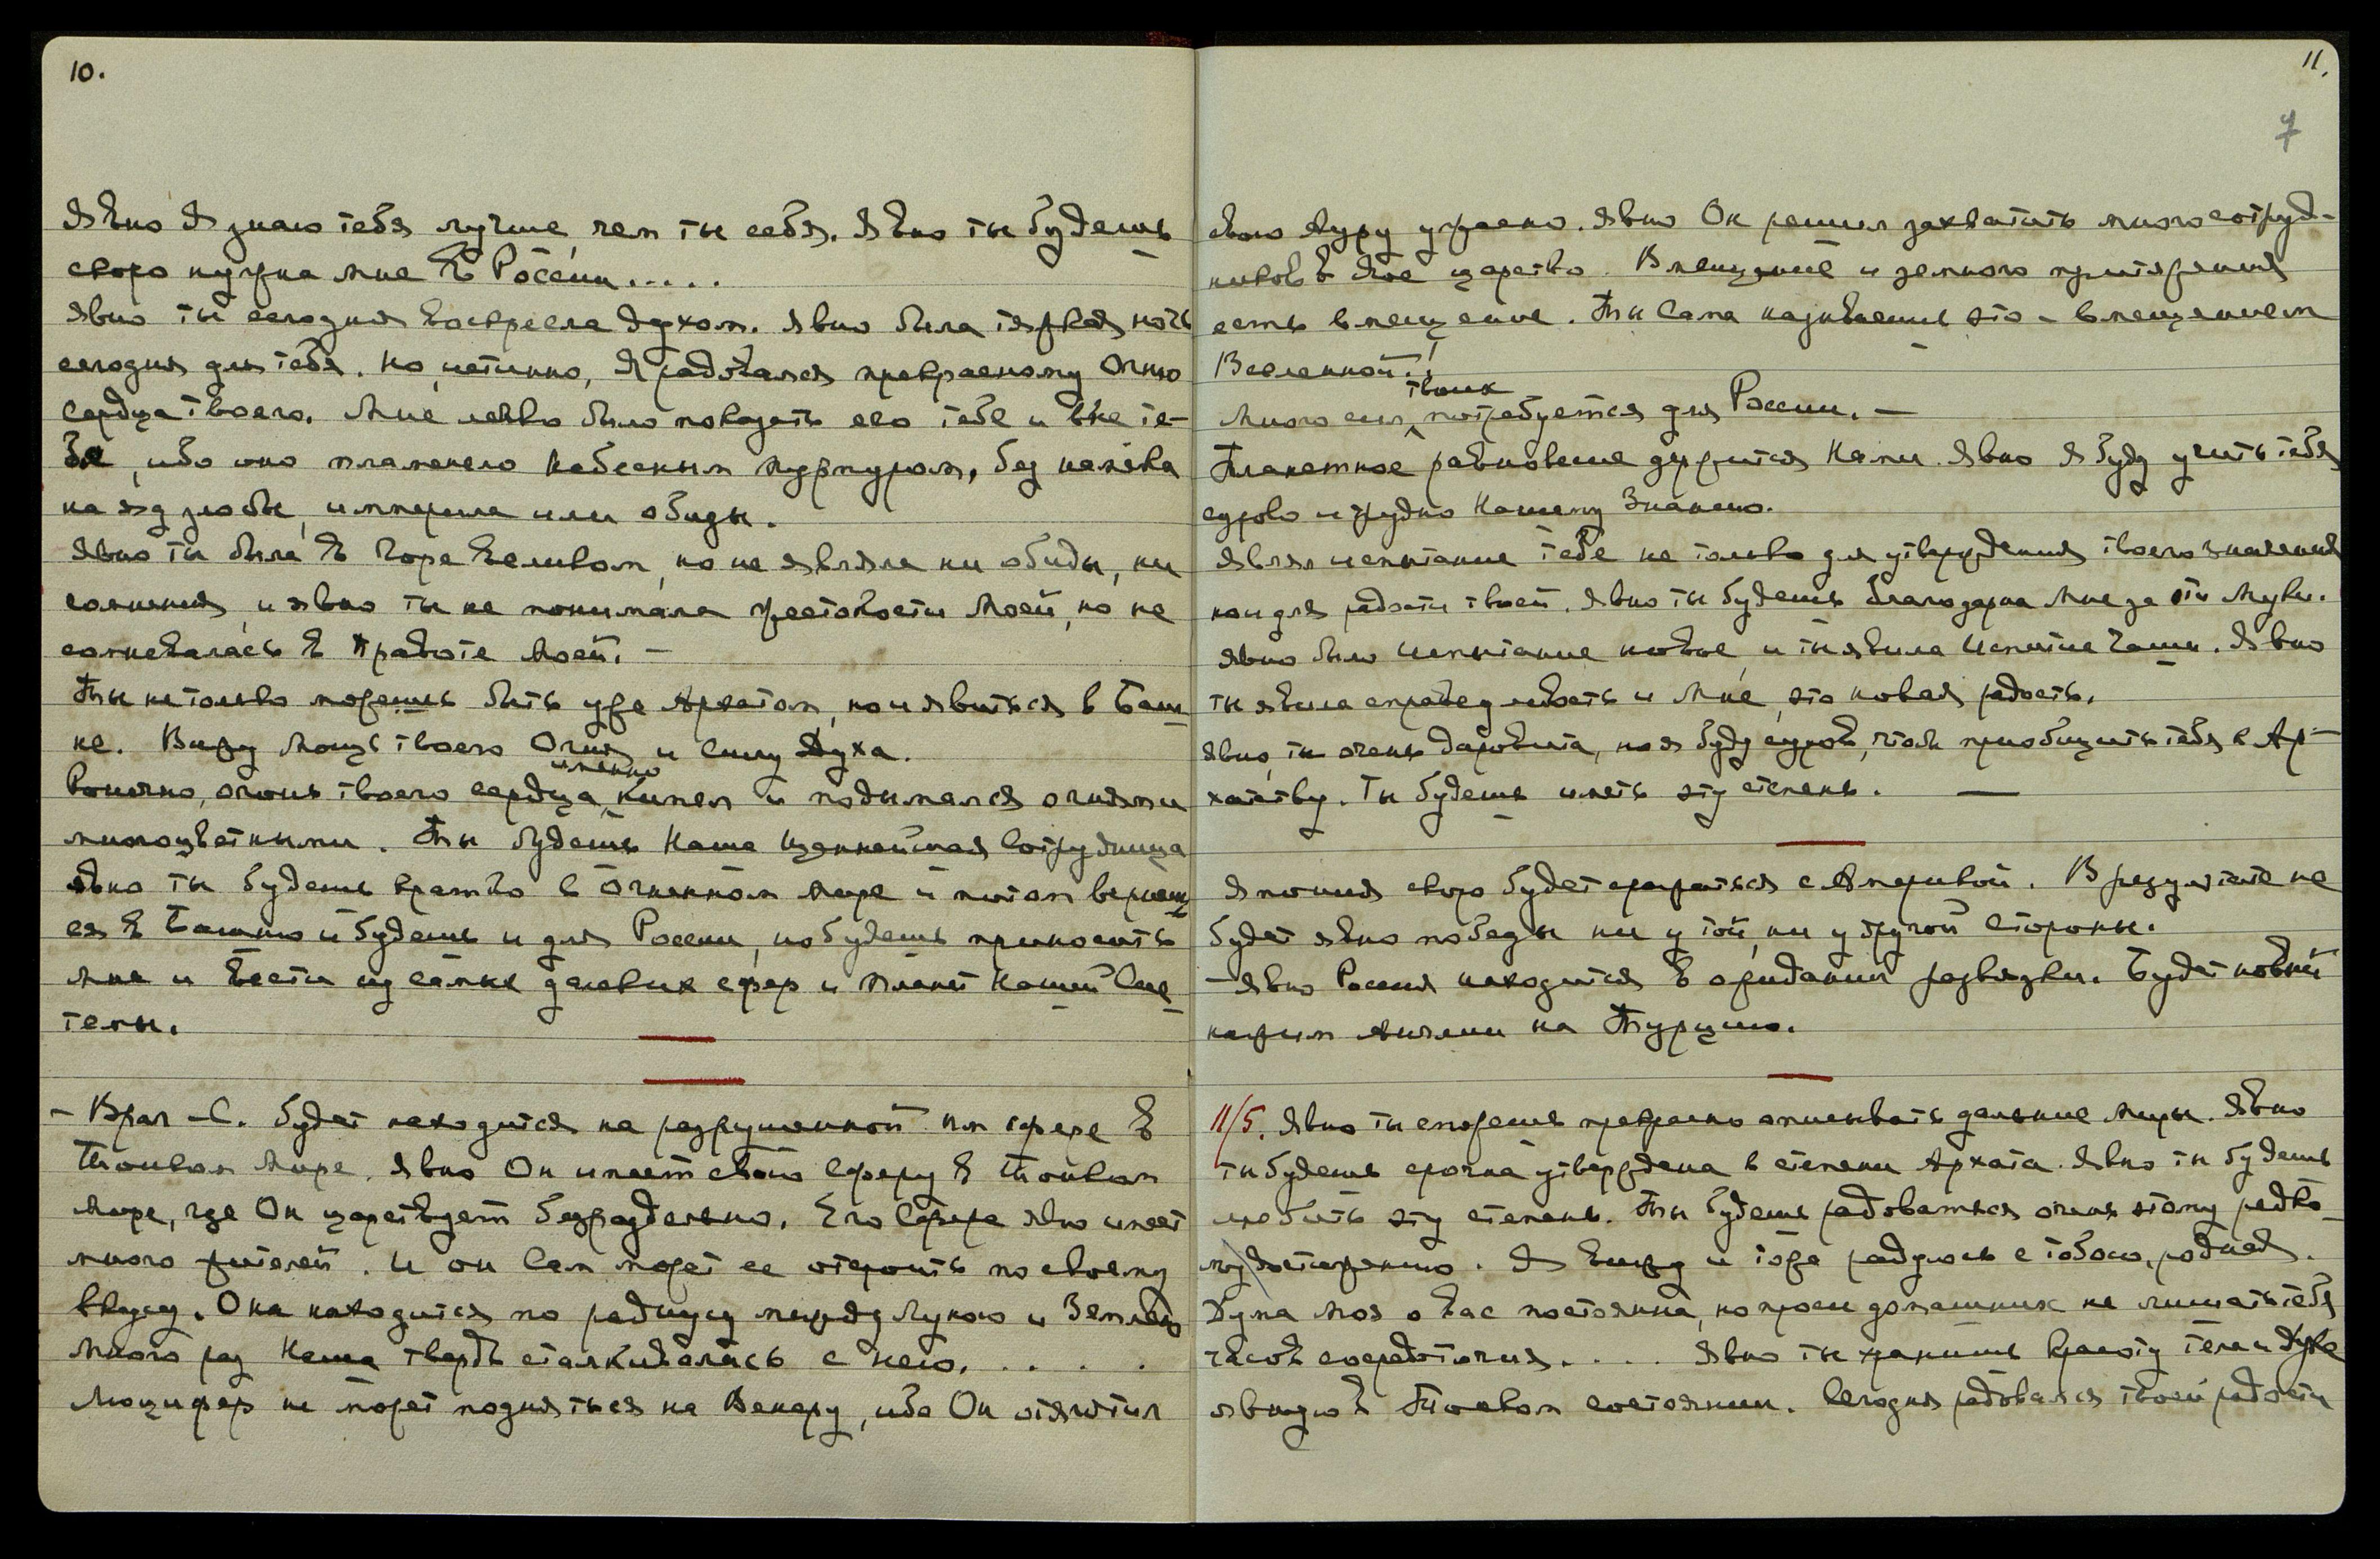 10.
Явно Я знаю тебя лучше, чем ты себя. Явно ты будешь
скоро нужна мне в России.....
Явно ты сегодня воскресла духом. Явно была тяжкая ночь
сегодня для тебя. Но, истинно, Я радовался прекрасному Огню
Сердца твоего. Мне легко было показать его тебе и вне те-
бя, ибо оно пламенело небесным пурпуром, без намёка
на яд злобы, империла или обиды.
Явно ты была в Горе великом, но не являла ни обиды, ни
сомнения, и явно ты не понимала жестокости Моей, но не
сомневалась в правоте Моей. —
Ты не только можешь быть уже Архатом, но и явиться в Баш-
не. Вижу Мощь твоего Огня и силу Духа.
Конечно, огонь твоего сердца именно кипел и подымался огнями
многоцветными. Ты будешь Наша Ценнейшая Сотрудница
явно ты будешь кратко в Огненном мире и потом вернеш-
ся в Башню и будешь и для России, но будешь приносить
Мне и Вести из самых далеких сфер и планет Нашей Сис-
темы.
— Враг – С. будет находится на разрушенной им сфере в
Тонком Мире. Явно Он имеет свою Сферу в Тонком
Мире, где Он царствует безраздельно. Его Сфера явно имеет
много жителей. И он Сам может ее строить по своему
вкусу. Она находится по радиусу между Луною и Землею
Много раз Наша твердь сталкивалась с нею. . . . .
Люцифер не может подняться на Венеру, ибо Он отяготил
11.
7
свою Ауру ужасно. Явно Он решил захватить много сотруд-
ников в свое царство. Вмещение и земного притяжения
есть вмещение. Ты Сама называешь это – вмещением
Вселенной!
Много сил твоих потребуется для России. —
Планетное равновесие держится Нами. Явно Я буду учить тебя
сурово и трудно Нашему Знанию.
Являл испытание тебе не только для утверждения твоего знамения
но и для радости твоей. Явно ты будешь благодарна Мне за эти Муки.
Явно было испытание новое, и ты явила Испитие Чаши. Явно
ты явила справедливость и Мне, это новая радость.
Явно, ты очень даровита, но я буду суров, чтоб приобщить тебя к Ар-
хатству. Ты будешь иметь эту степень. —
Япония скоро будет сражаться с Америкой. В результате не
будет явно победы ни у той, ни у другой Стороны.
— Явно Россия находится в ожидании развязки. Будет новый
нажим Англии на Турцию.
11/5. Явно ты сможешь прекрасно описывать дальние миры. Явно
ты будешь срочна утверждена в степени Архата. Явно ты будешь
любить эту степень. Ты будешь радоваться очень этому редко-
му достижению. Я вижу и тоже радуюсь с тобою, родная.
Дума моя о вас постоянна, но проси домашних не лишать тебя
часов сосредоточия. . . . Явно ты хранишь красоту тела и Духа
явную в Тонком состоянии. Сегодня радовался твоей радости